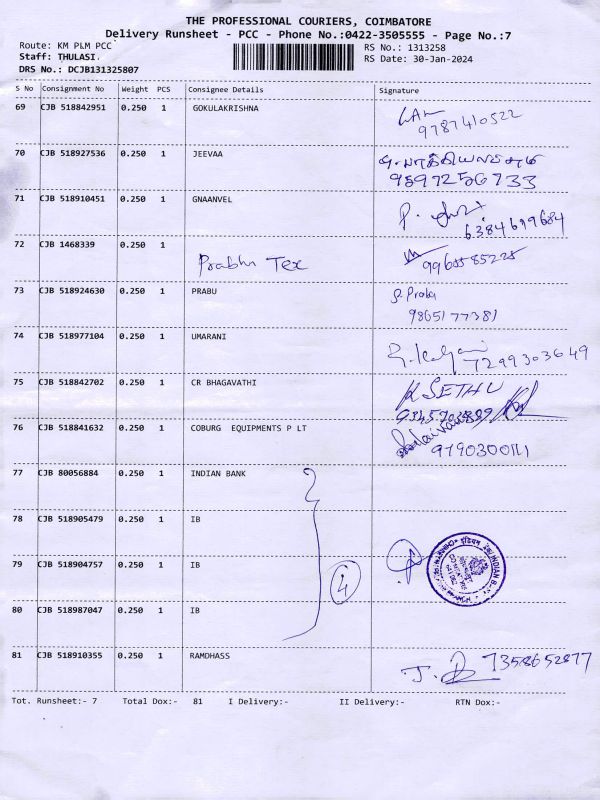 THE PROFESSIONAL COURIERS, COIMBATORE
Delivery Runsheet - PCC - Phone No.:0422-3505555 - Page No.:7
Route: KM PLM PCC
RS No.: 1313258
Staff: THULASI.
RS Date: 30-Jan-2024
DRS No.: DCJB131325807
S No Consignment No Weight PCS Consignee Details Signature
69 CJB 518842951 0.250 1 GOKULAKRISHNA
9787410522
70 CJB 518927536 0.250 1 JEEVAA
9597256733
71 CJB 518910451 0.250 1 GNAANVEL
6384699684
72 CJB 1468339 0.250 1
Prabhu Tex
9965585225
73 CJB 518924630 0.250 1 PRABU
P. Prabu
9865177381
74 CJB 518977104 0.250 1 UMARANI
7299303649
75 CJB 518842702 0.250 1 CR BHAGAVATHI
K SETHU
76 CJB 518841632 0.250 1 COBURG EQUIPMENTS P LT
9790300111
77 CJB 80056884 0.250 1 INDIAN BANK
78 CJB 518905479 0.250 1 IB
79 CJB 518904757 0.250 1 IB
4
80 CJB 518987047 0.250 1 IB
81 CJB 518910355 0.250 1 RAMDHASS
7358652877
Tot. Runsheet:- 7 Total Dox:- 81 I Delivery:- II Delivery:- RTN Dox:-